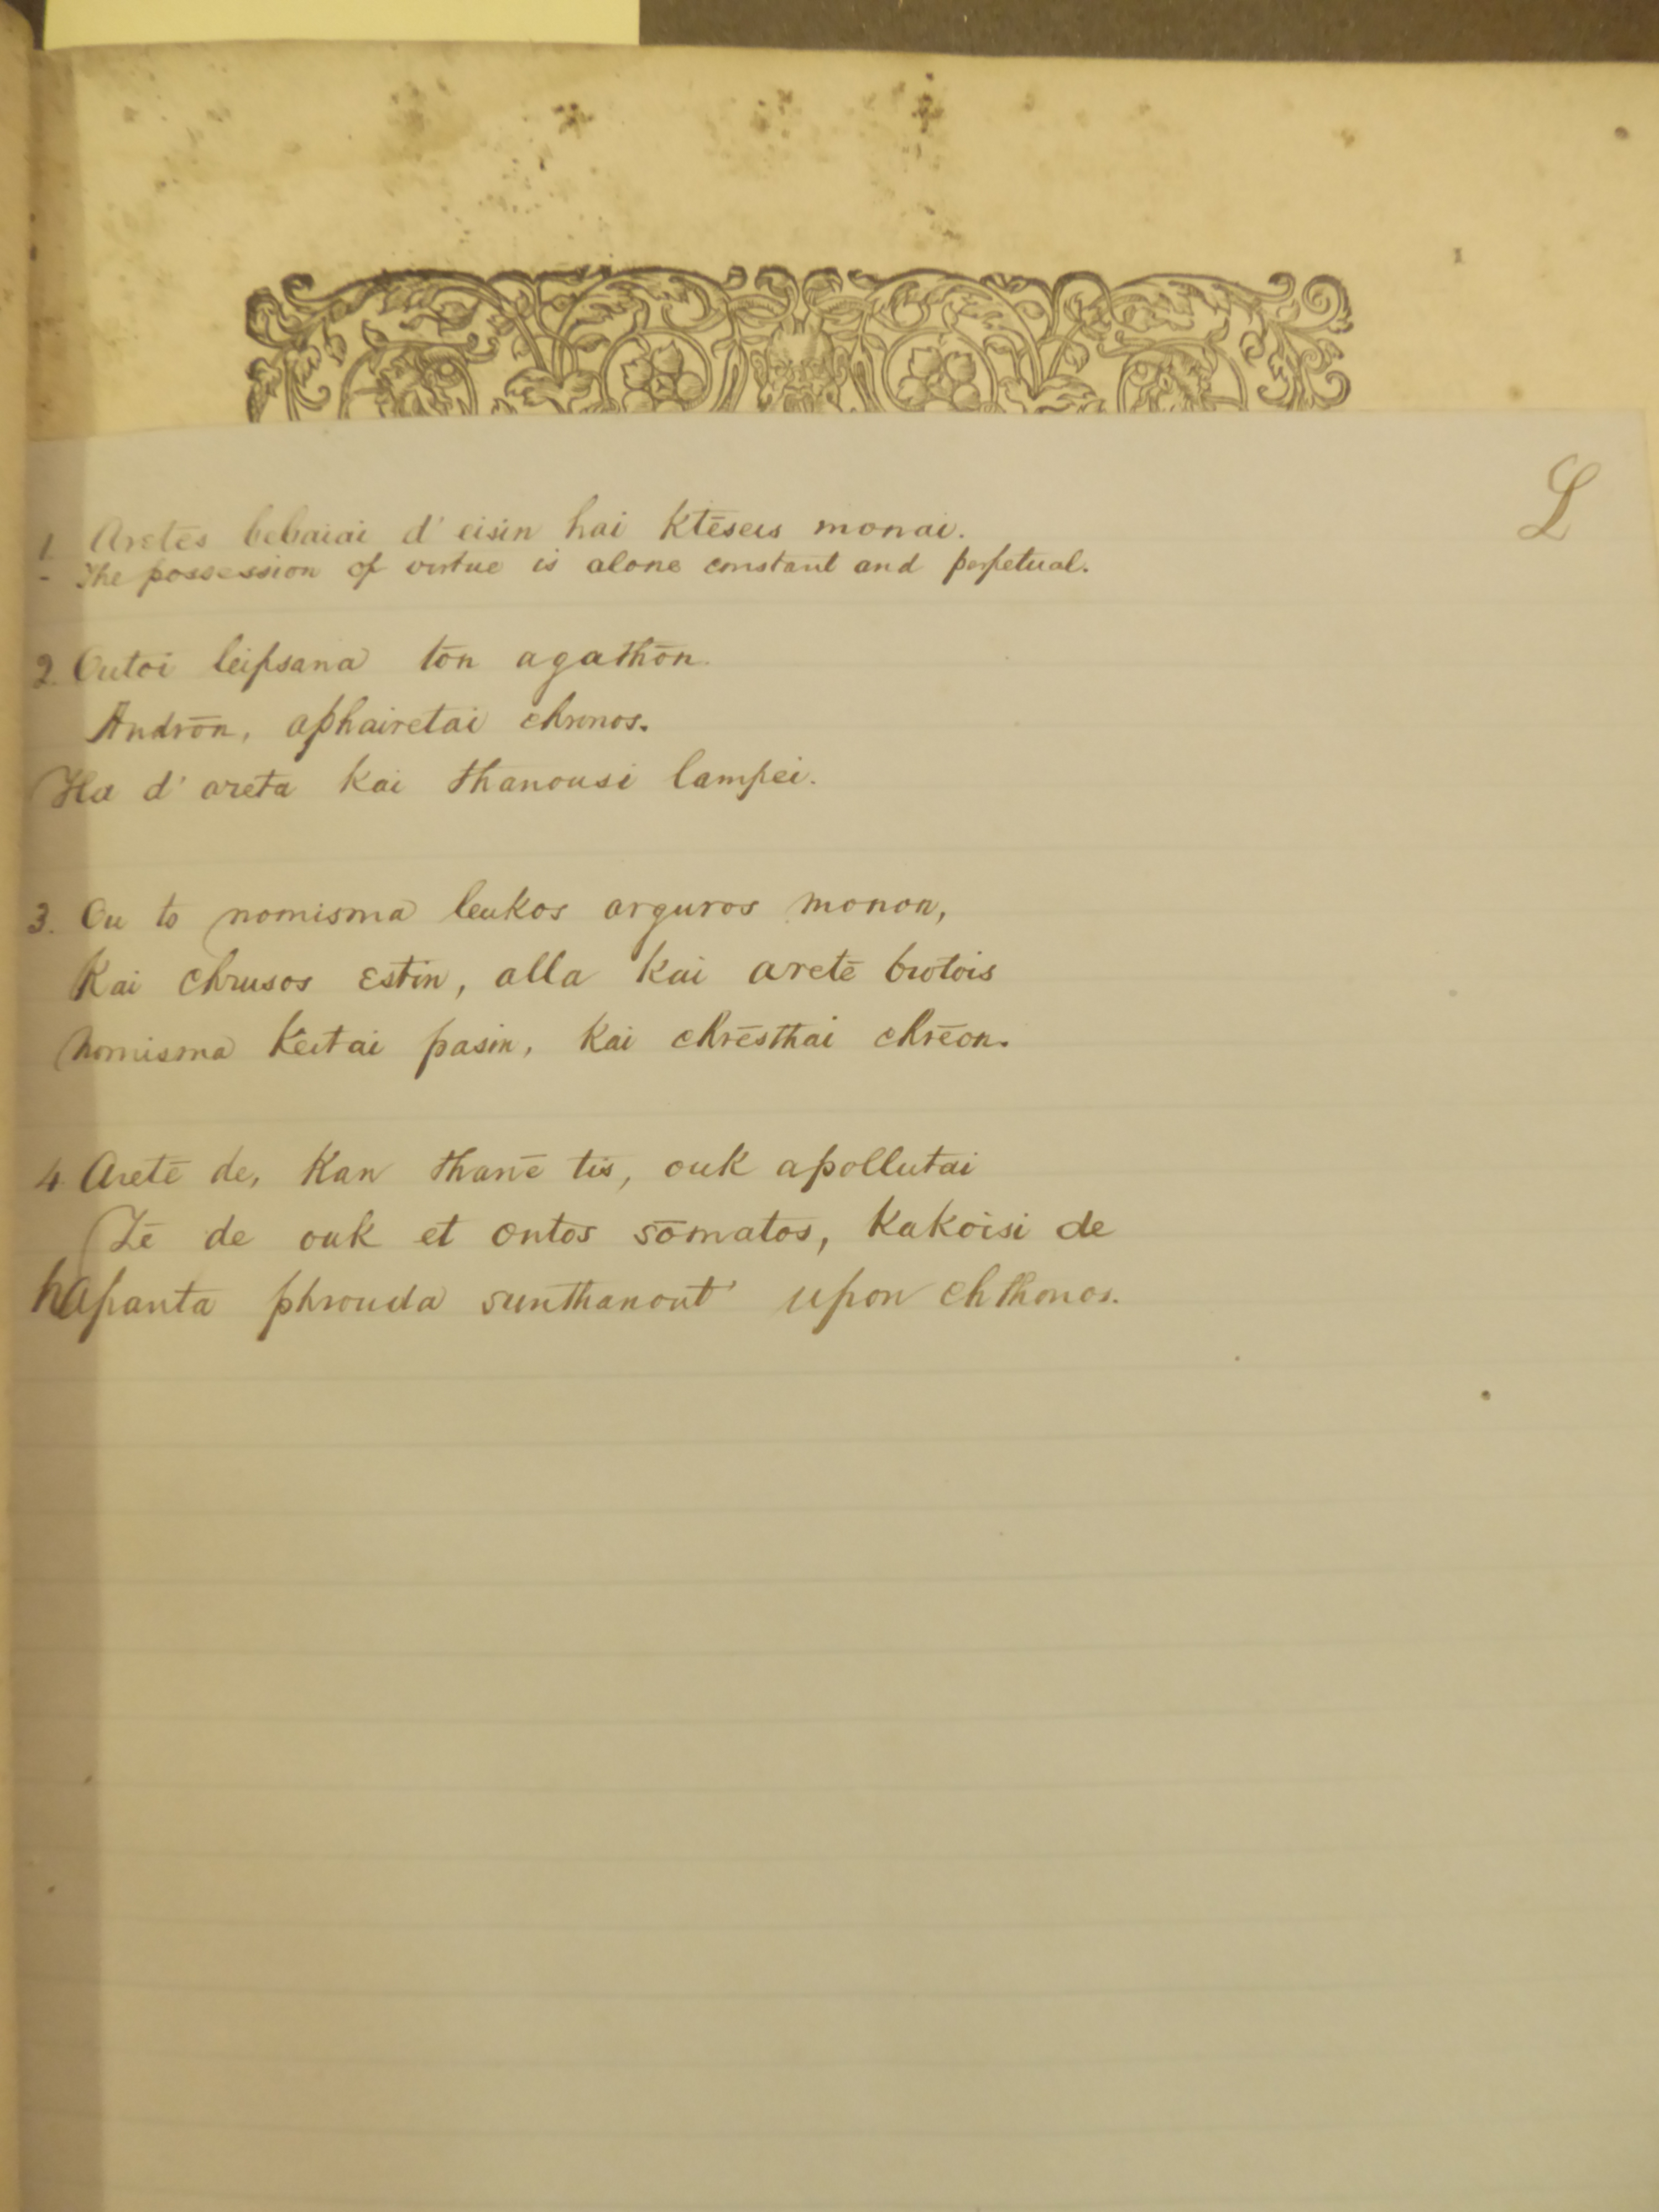 I
L
1. Aretēs bebaiai d' eisin hai Ktēseis monai.
- The possession of virtue is alone constant and perpetual.
2. Outoi leipsana tōn agathōn.
Andrōn, aphairetai chronos.
Ha d' areta Kai thanousi lampei.
3. Ou to nomisma leukos arguros monon,
Kai chrusos estin, alla Kai aretē brotois
Nomisma Keitai pasin, Kai chrēsthai chrēon.
4 Aretē de, Kan thanē tis, ouk apollutai
Zē de ouk et ontos sōmatos, Kakoisi de
hapanta phrouda sunthanont' upon chthonos.